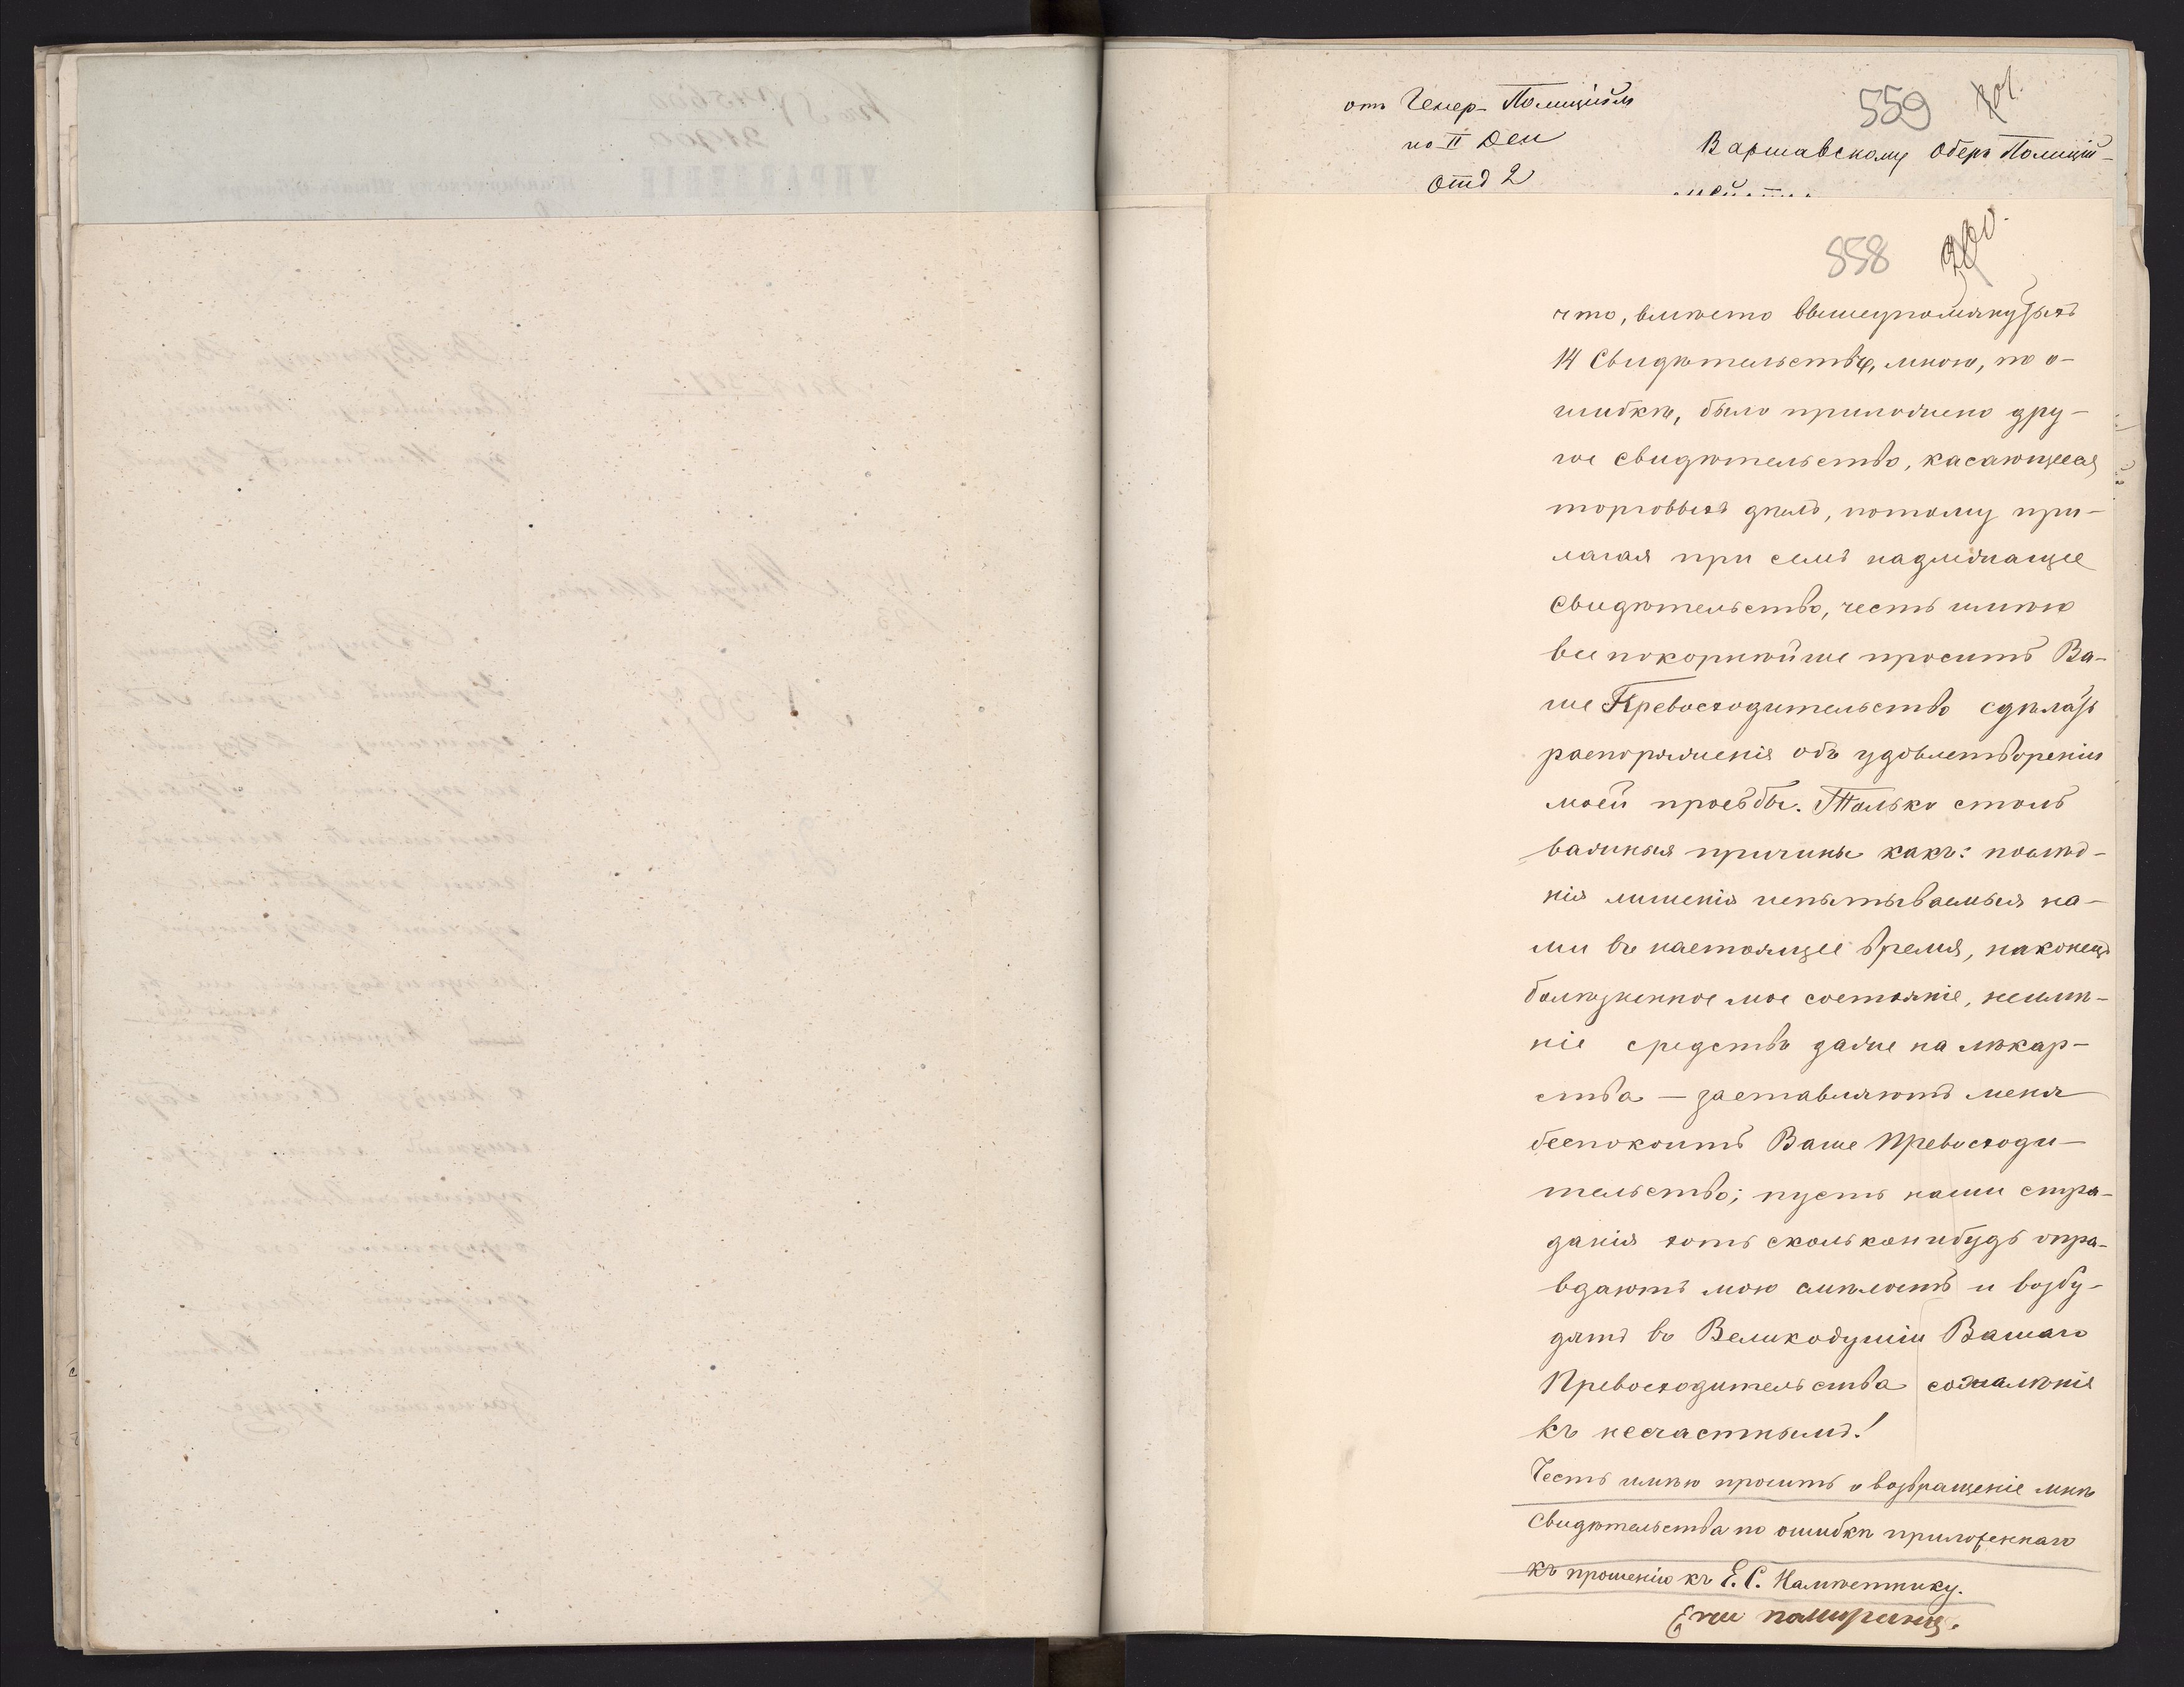 отъ Генер-Полиційм
по II Дел
Отд 2
559
701.
Варшавскому Оберъ Полицій-
558
700.
что, вмѣсто вышеупомянутыхъ
14 Свидѣтельствъ, мною, по о-
шибкѣ, было приложено дру-
гое свидѣтельство, касающееся
торговыхъ дѣлъ, потому при-
лагая при семъ надлежащее
Свидѣтельство, честь имѣю
всепокорнѣйше просить Ва-
ше Превосходительство сдѣлать
распоряженія объ удовлетвореніи
моей просьбы. Только столь
важныя причины какъ: послѣд-
нія лишенія испытываемыя на-
ми въ настоящее время, наконецъ
болѣзненное мое состояніе, неимѣ-
ніе средствъ даже на лѣкар-
ства — заставляютъ меня
безпокоить Ваше Превосходи-
тельство; пусть наши стра-
данія хоть сколько нибудь опра-
вдаютъ мою смѣлость и возбу-
дятъ въ Великодушіи Вашаго
Превосходительства сожалѣніе
къ несчастнымъ!
Честь имѣю просить о возвращеніе мнѣ
Свидѣтельства по ошибкѣ приложеннаго
къ прошенію къ Е. С. Намѣстнику.